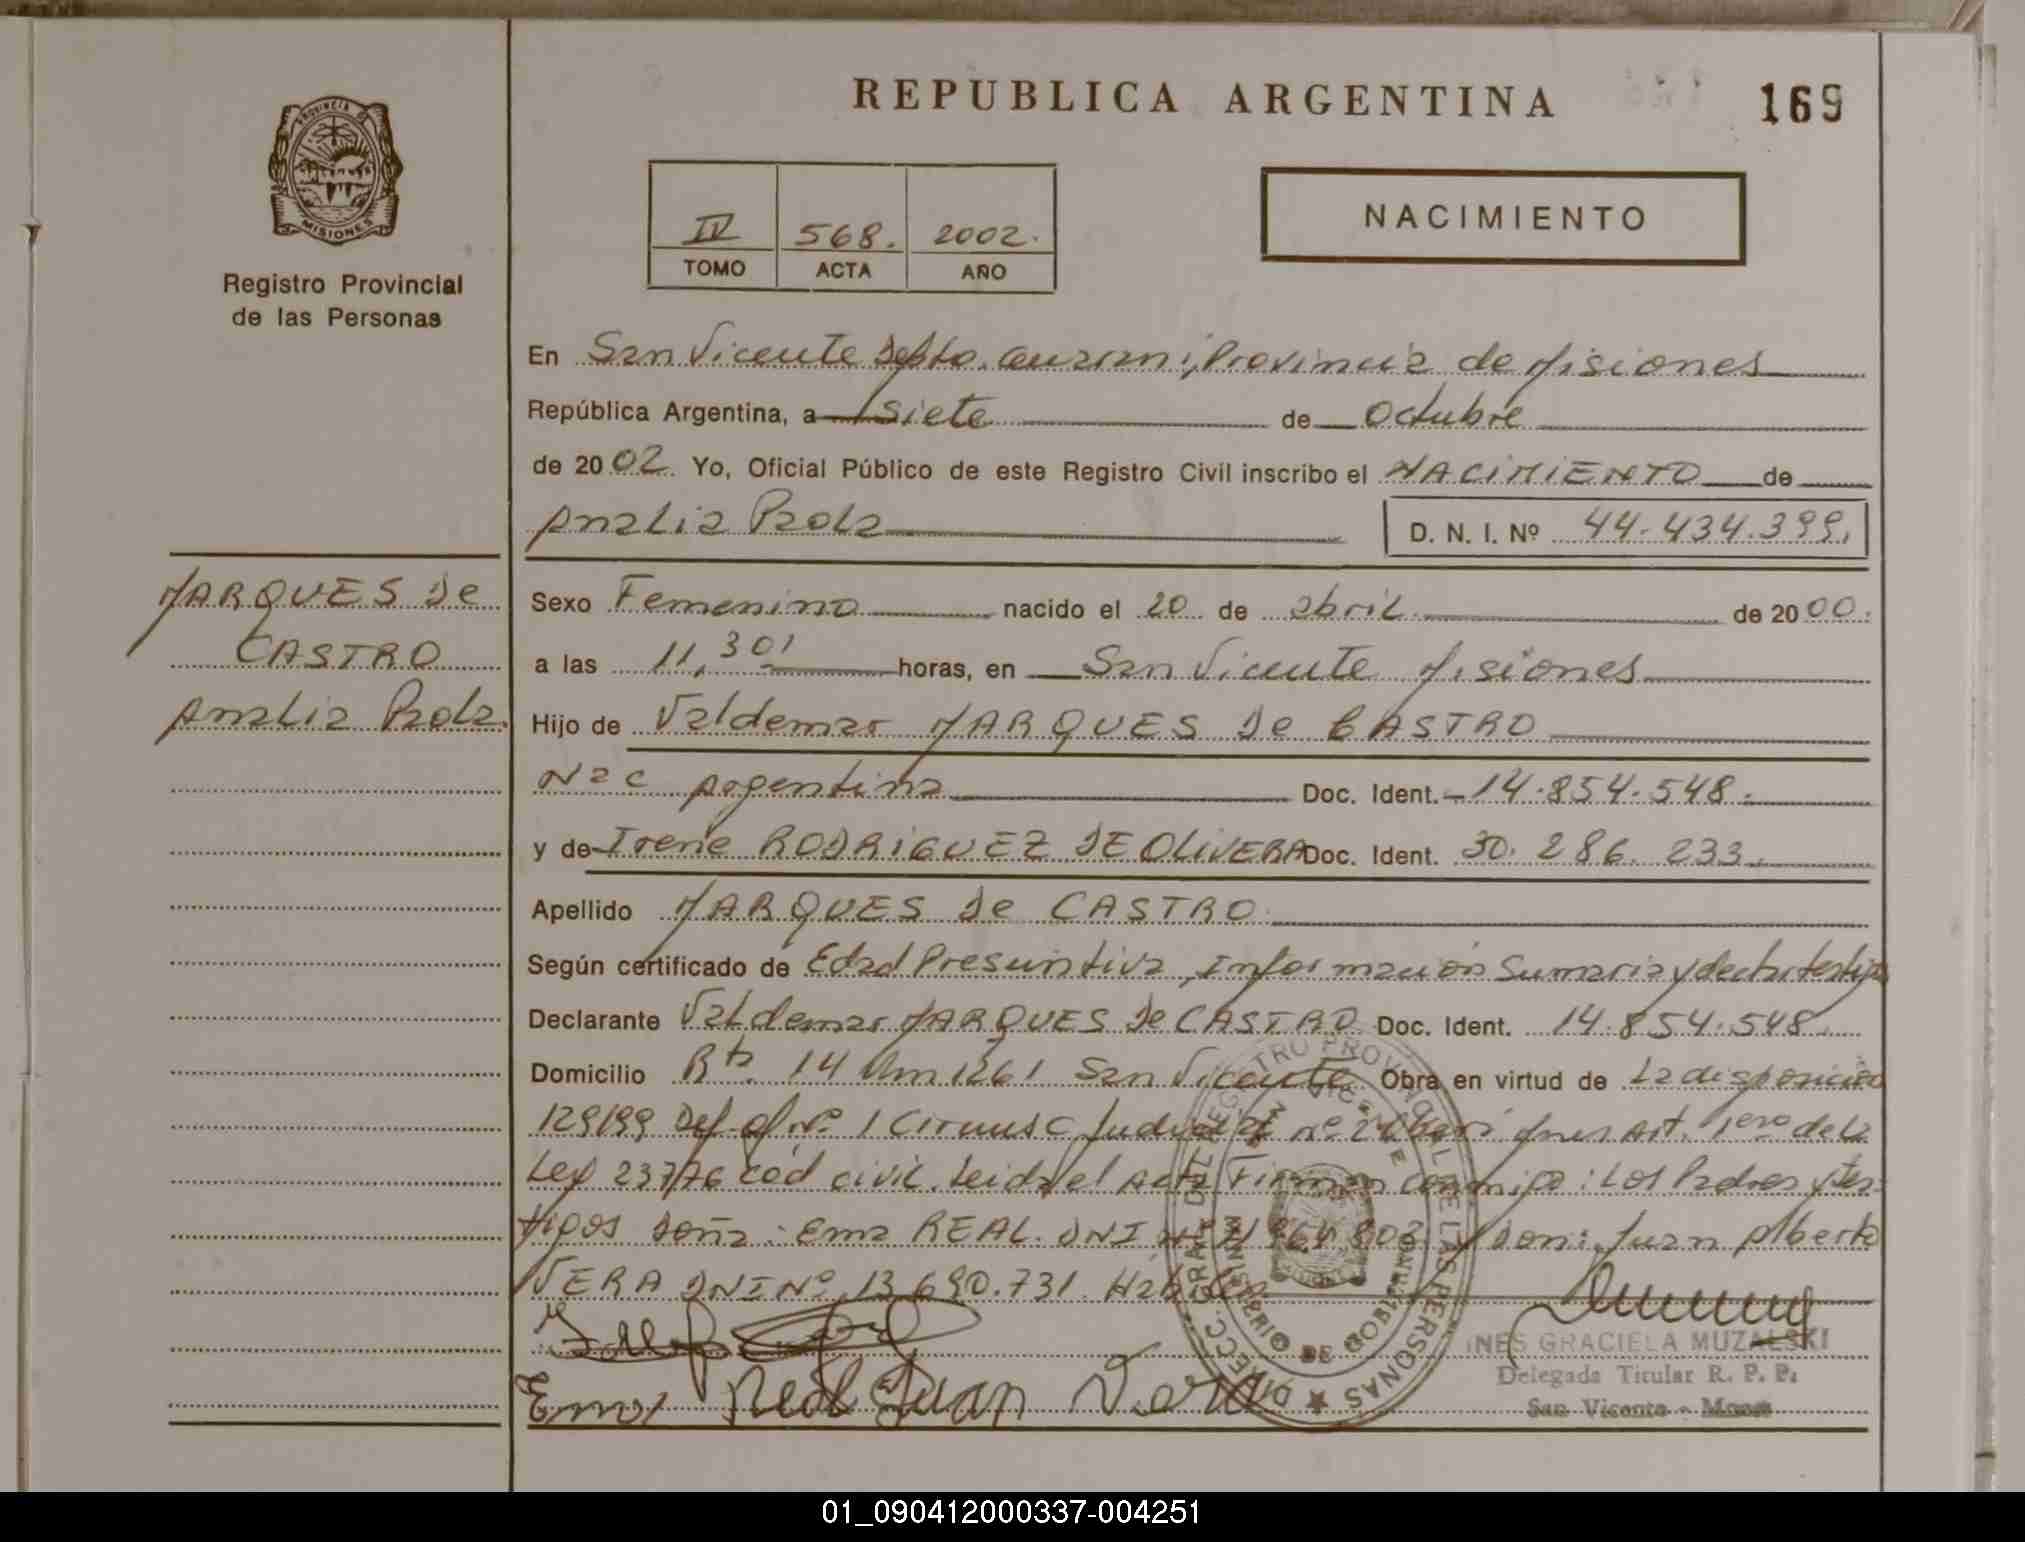 REPUBLICA ARGENTINA
169
PROVINCIA DE
MISIONES
Registro Provincial
de las Personas
IV 568. 2002.
TOMO ACTA AÑO
NACIMIENTO
En San Vicente Depto. Guarani, Provincia de Misiones
República Argentina, a Siete de Octubre
de 2002. Yo, Oficial Público de este Registro Civil inscribo el NACIMIENTO de
Analia Paola
D. N. I. Nº 44.434.399.
MARQUES De
CASTRO
Analia Paola.
Sexo Femenino nacido el 20 de abril de 2000.
a las 11,30' horas, en San Vicente Misiones
Hijo de Valdemar MARQUES De CASTRO
Nac Argentina Doc. Ident. 14.854.548.
y de Irene RODRIGUEZ DE OLIVERA Doc. Ident. 30.286.233.
Apellido MARQUES De CASTRO
Según certificado de Edad Presuntiva, Información Sumaria y declar testigos
Declarante Valdemar MARQUES De CASTRO Doc. Ident. 14.854.548.
Domicilio Rta. 14 Km 1261 San Vicente Obra en virtud de La disposición
129/99 Def. of. Nº 1 Circunsc Judicial nº 2 Art. 1ero de La
Ley 23776 Cód civil. Leida el Acta Firman conmigo: Los Padres y Tes-
tigos Doña: Ema REAL. DNI Nº 803 y Don: Juan Alberto
VERA DNI Nº 13.690.731. Habiles
Ema Real Juan Vera
DIRECC. GRAL. DEL REGISTRO PROVINCIAL DE LAS PERSONAS
MINISTERIO DE GOBIERNO
SAN VICENTE
INES GRACIELA MUZALSKI
Delegada Titular R. P. P.
San Vicente - Mnes
01_090412000337-004251